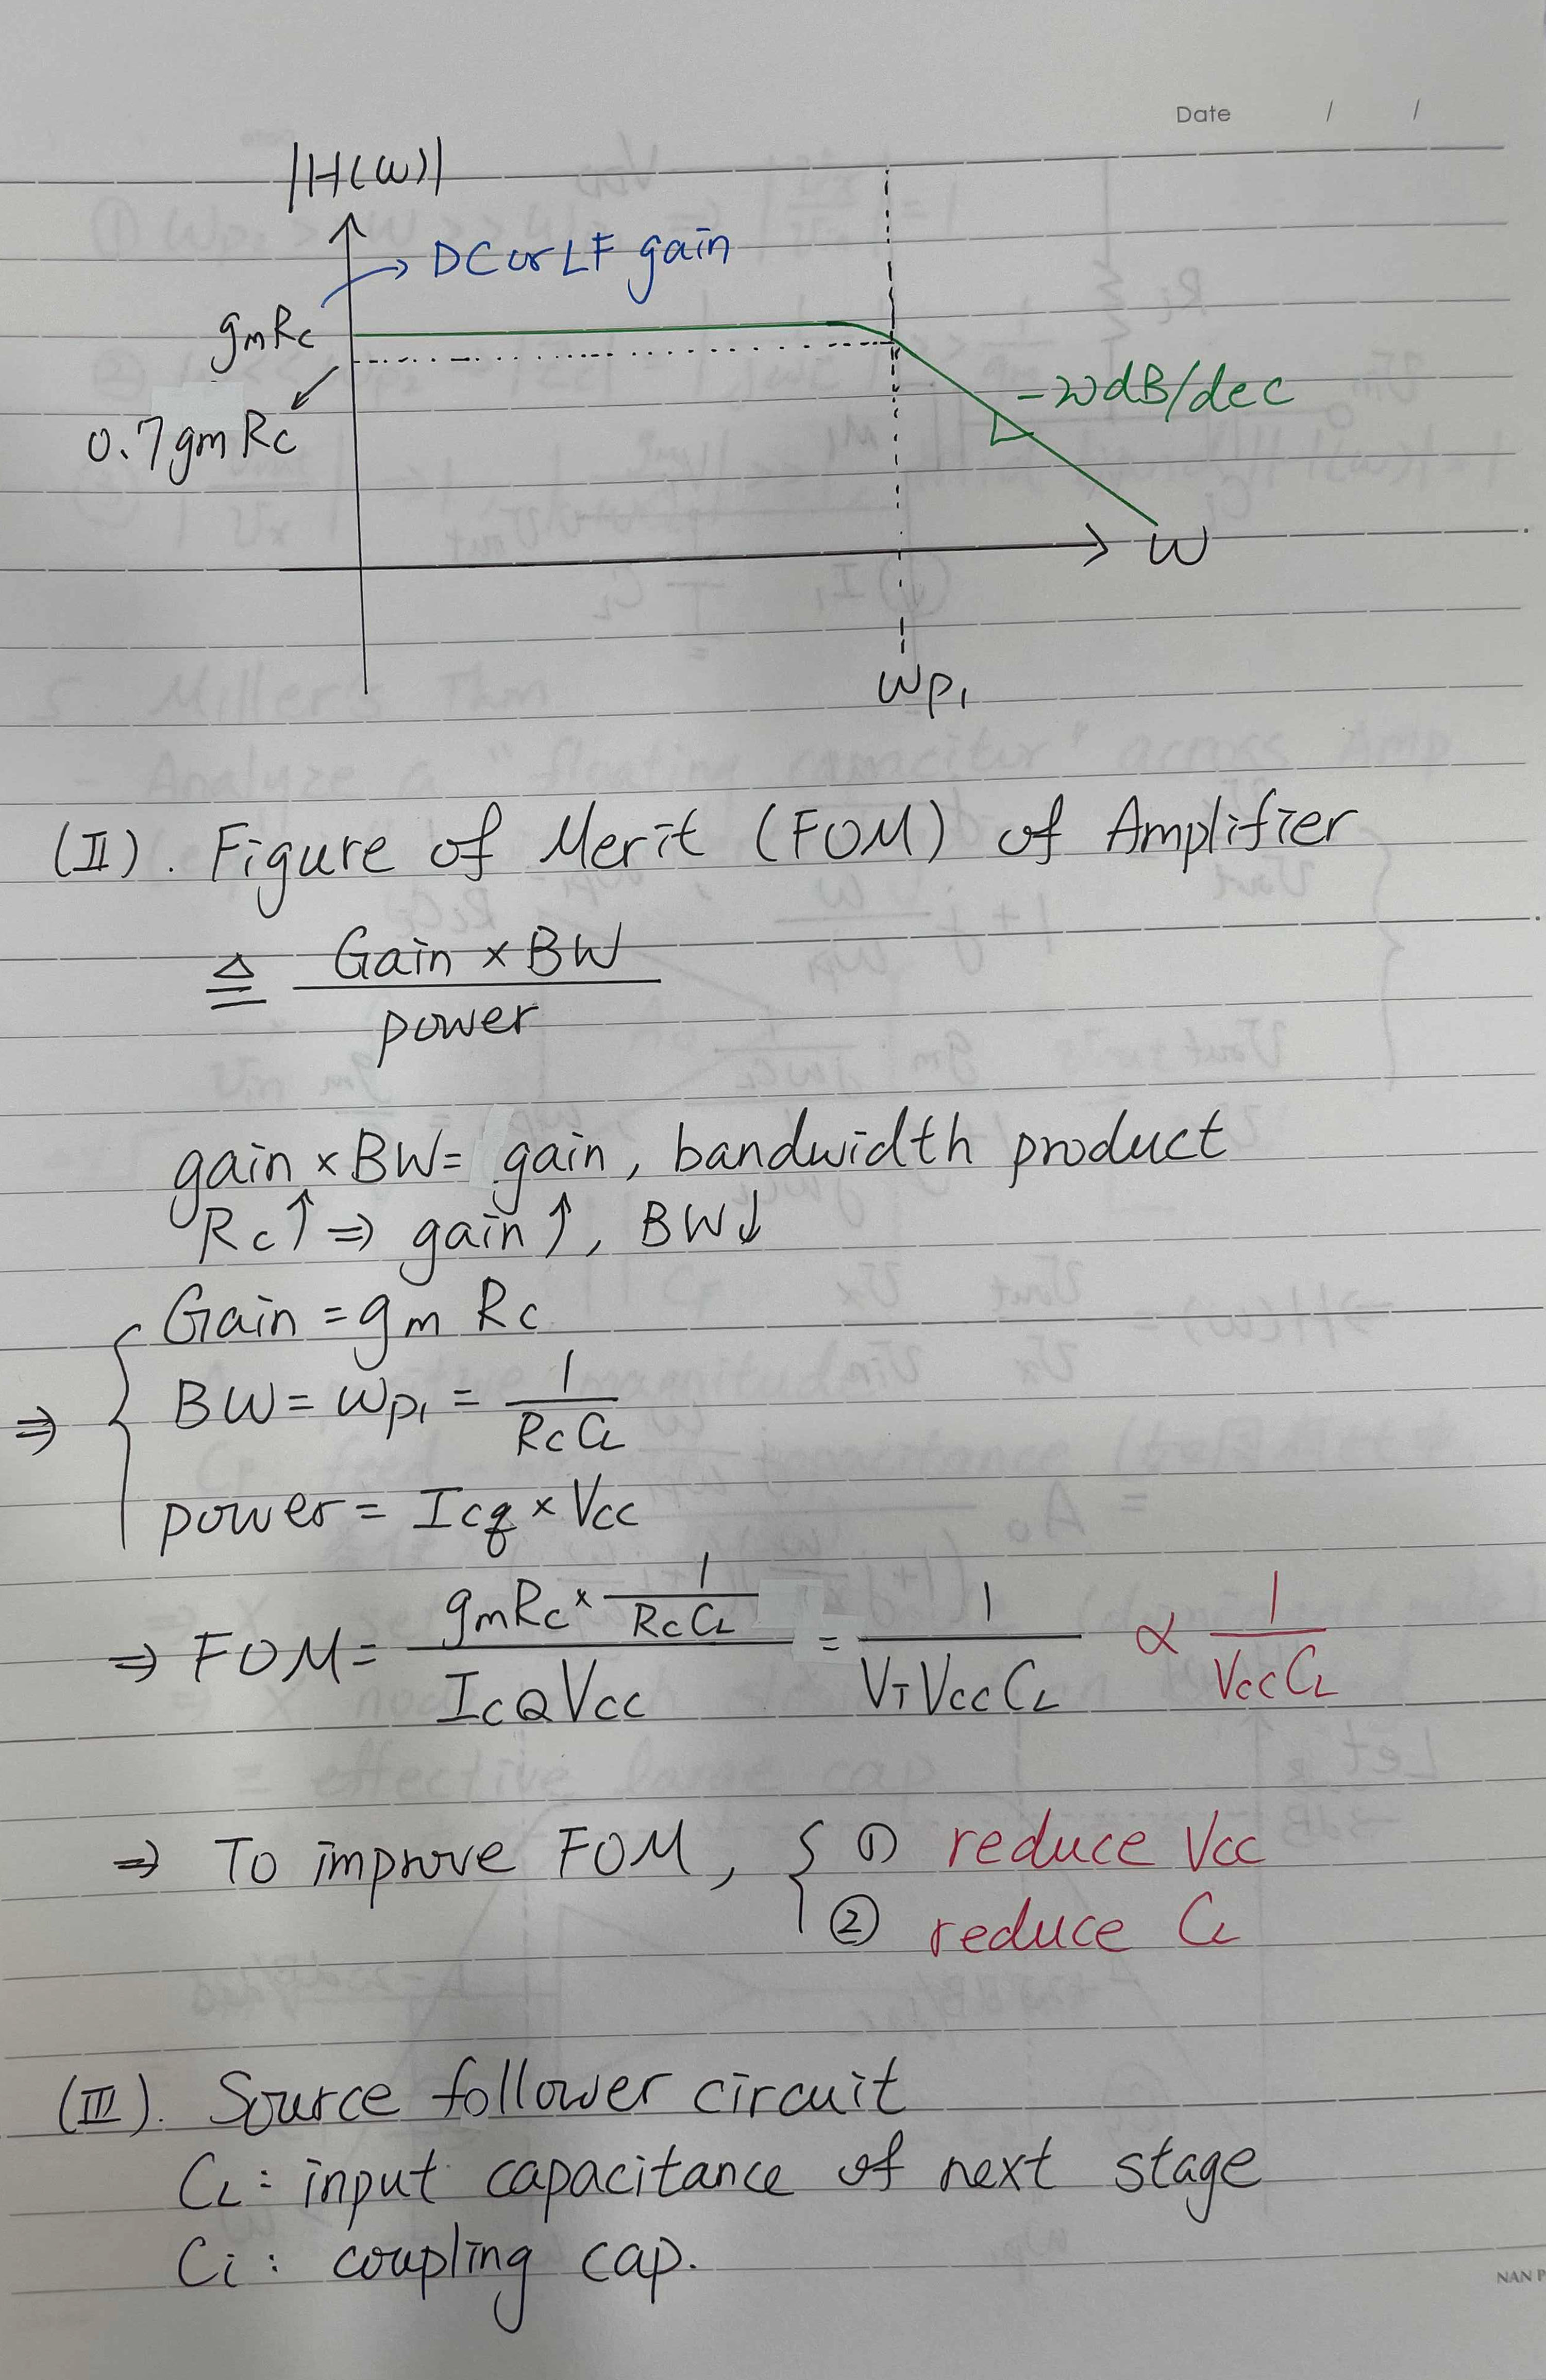 Date / /
|H(ω)|
DC or LF gain
gmRc
-20dB/dec
0.7gmRc
ω
ωp1
(II). Figure of Merit (FOM) of Amplifier
≜ Gain × BW / power
gain × BW = gain, bandwidth product
Rc↑ ⇒ gain↑, BW↓
⇒ { Gain = gm Rc
BW = ωp1 = 1 / RcCL
power = Icq × Vcc
⇒ FOM = (gmRc × 1/RcCL) / ICQVcc = 1 / VTVccCL ∝ 1 / VccCL
⇒ To improve FOM, { ① reduce Vcc
② reduce CL
(III). Source follower circuit
CL: input capacitance of next stage
Ci: coupling cap.
NAN P